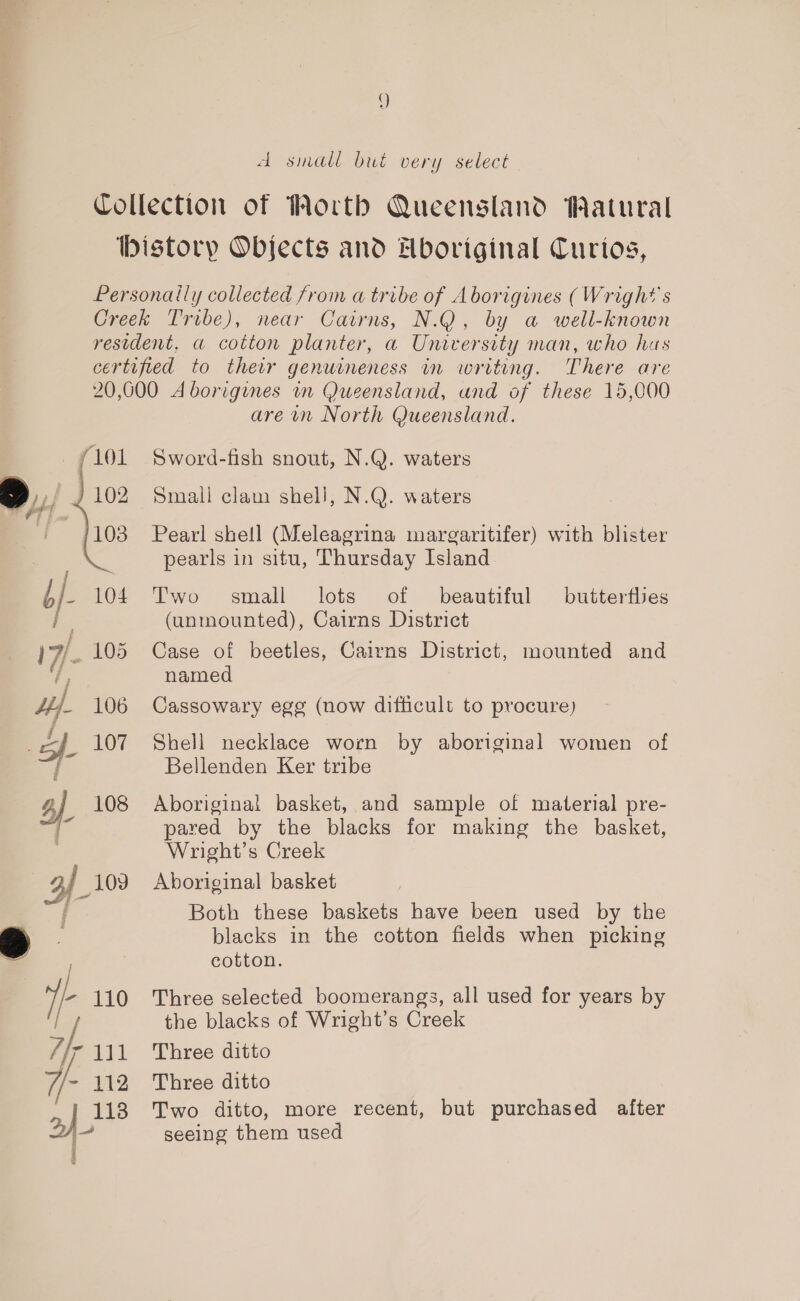 9
A small but very select
Collection of North Queensland Natural
History Objects and Aboriginal Curios,
Personally collected from a tribe of Aborigines (Wright's
Creek Tribe), near Cairns, N.Q, by a well-known
resident. a cotton planter, a University man, who has
certified to their genuineness in writing. There are
20,000 Aborigines in Queensland, and of these 15,000
are in North Queensland.
101 Sword-fish snout, N.Q. waters
102 Small clam shell, N.Q. waters
103 Pearl shell (Meleagrina margaritifer) with blister
pearls in situ, Thursday Island
6/- 104 Two small lots of beautiful butterflies
(unmounted), Cairns District
17/- 105 Case of beetles, Cairns District, mounted and
named
106 Cassowary egg (now difficult to procure)
5/- 107 Shell necklace worn by aboriginal women of
Bellenden Ker tribe
108 Aboriginal basket, and sample of material pre-
pared by the blacks for making the basket,
Wright's Creek
109 Aboriginal basket
Both these baskets have been used by the
blacks in the cotton fields when picking
cotton.
110 Three selected boomerangs, all used for years by
the blacks of Wright's Creek
7/- 111 Three ditto
7/- 112 Three ditto
113 Two ditto, more recent, but purchased after
seeing them used